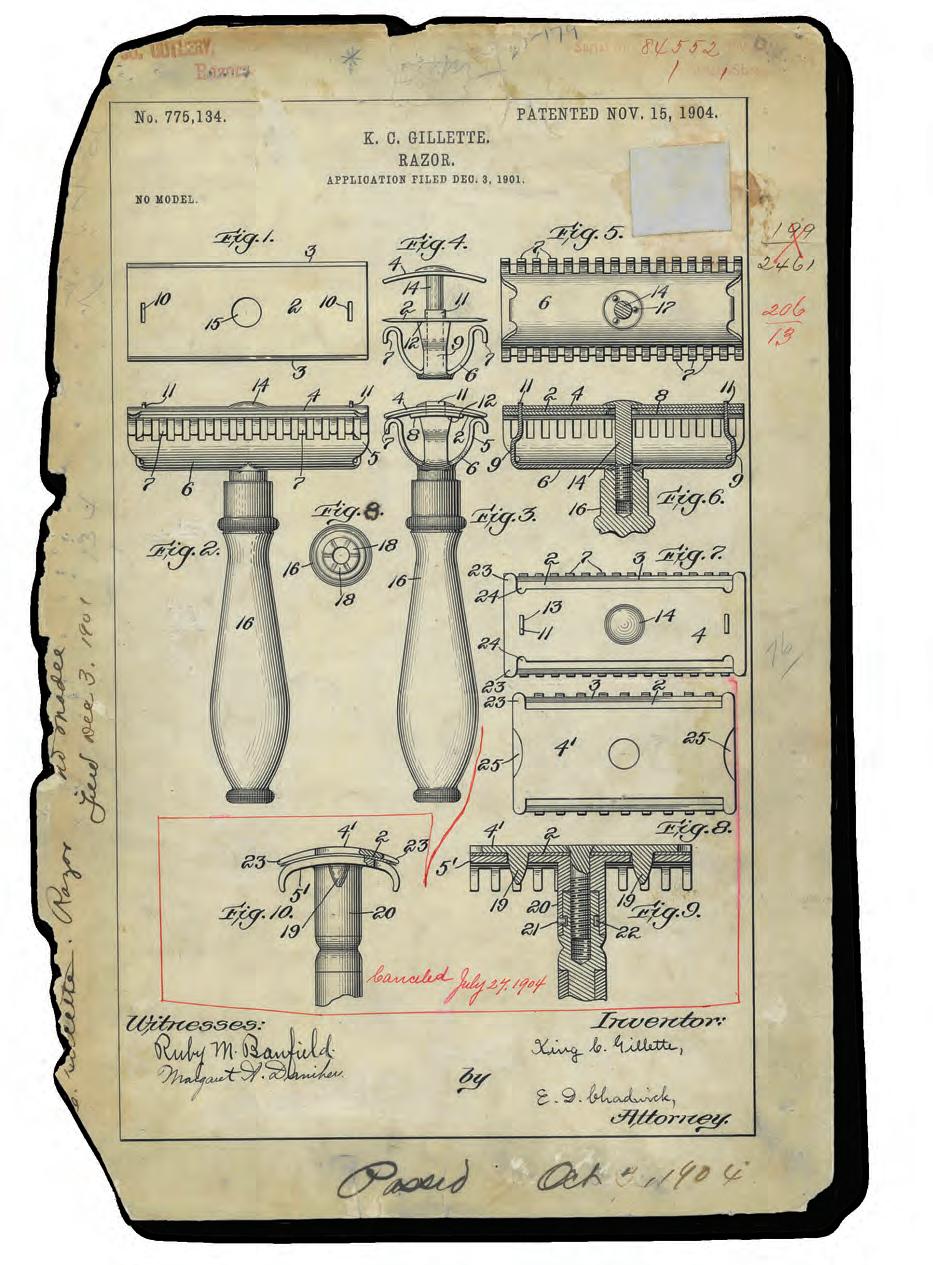 CUTLERY,
Razors
Serial No. 84552
No. 775,134.
PATENTED NOV. 15, 1904.
K. C. GILLETTE.
RAZOR.
APPLICATION FILED DEC. 3, 1901.
NO MODEL.
199
2461
206
13
Fig.1.
3
10
15
2
10
3
Fig.4.
4
14
11
2
12
9
7
7
6
Fig.5.
7
6
14
17
7
11
14
4
11
7
6
7
5
Fig.2.
16
4
11
12
7
8
2
5
6
Fig.3.
16
11
2
4
8
11
9
6
14
9
16
Fig.6.
Fig.8.
16
18
18
Fig.7.
23
2
7
3
24
13
11
14
4
24
23
23
3
2
25
4'
25
Fig.8.
23
4'
2
23
5'
Fig.10.
19
20
4'
2
5'
19
20
19
21
22
Fig.9.
Canceled July 27, 1904
Witnesses:
Ruby M. Banfield.
Margaret A. Daniher.
Inventor:
King C. Gillette,
by
E. D. Chadwick,
Attorney.
Passed Oct 3, 1904
no model
Filed Dec 3. 1901
Razor
76/